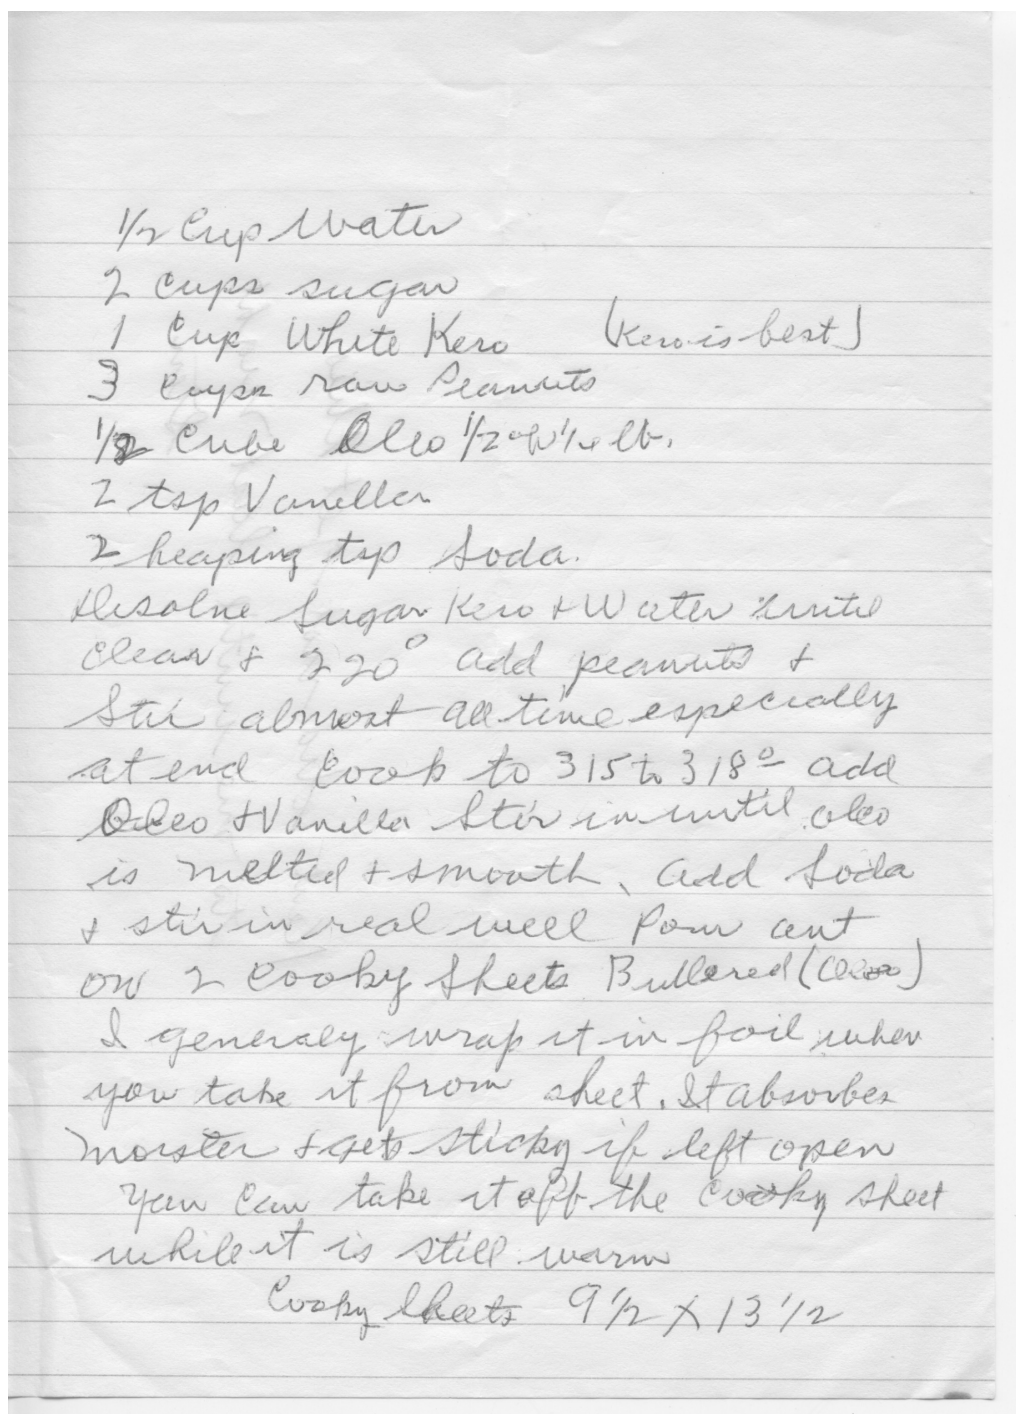 1/2 Cup Water
2 cups sugar
1 Cup White Kero (Kero is best)
3 cups raw Peanuts
1/2 Cube Oleo 1/2 of 1/4 lb.
2 tsp Vanella
2 heaping tsp Soda.
Disolve Sugar Kero + Water untill
Clear + 220° add peanuts +
Stir almost all time especially
at end Cook to 315 to 318° add
Oleo + Vanilla Stir in until oleo
is melted + smooth. Add Soda
+ stir in real well Pour out
on 2 Cooky Sheets Buttered (Oleo)
I generaly wrap it in foil when
you take it from sheet. It absorbes
moister + gets sticky if left open
You can take it off the Cooky sheet
while it is still warm
Cooky Sheets 9 1/2 X 13 1/2